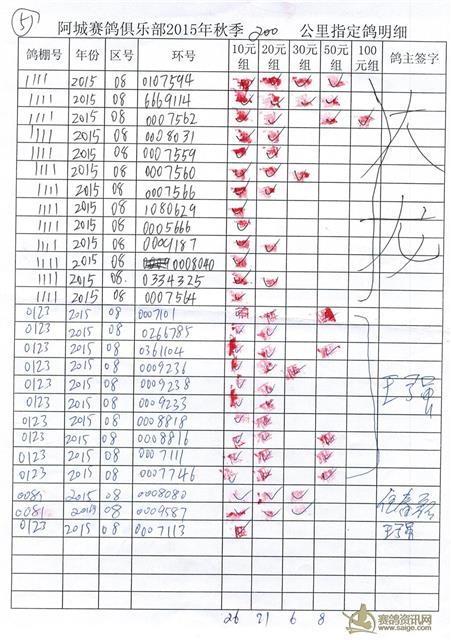 5
阿城赛鸽俱乐部2015年秋季 200 公里指定鸽明细
鸽棚号 年份 区号 环号 10元组 20元组 30元组 50元组 100元组 鸽主签字
1111 2015 08 0107594
1111 2015 08 6669114
1111 2015 08 0007562
1111 2015 08 0008031
1111 2015 08 0007559
1111 2015 08 0007560
1111 2015 08 0007566
1111 2015 08 1080629
1111 2015 08 0005666
1111 2015 08 0009187
1111 2015 08 0008040
1111 2015 08 0334325
1111 2015 08 0007564
0123 2015 08 0007101
0123 2015 08 0266785
0123 2015 08 0361104
0123 2015 08 0009236
0123 2015 08 0009238
0123 2015 08 0009233
0123 2015 08 0008818
0123 2015 08 0008816
0123 2015 08 0007111
0123 2015 08 0007746
0081 2015 08 0008080
0081 2015 08 0009587
0123 2015 08 0007113
26 21 6 8
赛鸽资讯网
www.saige.com